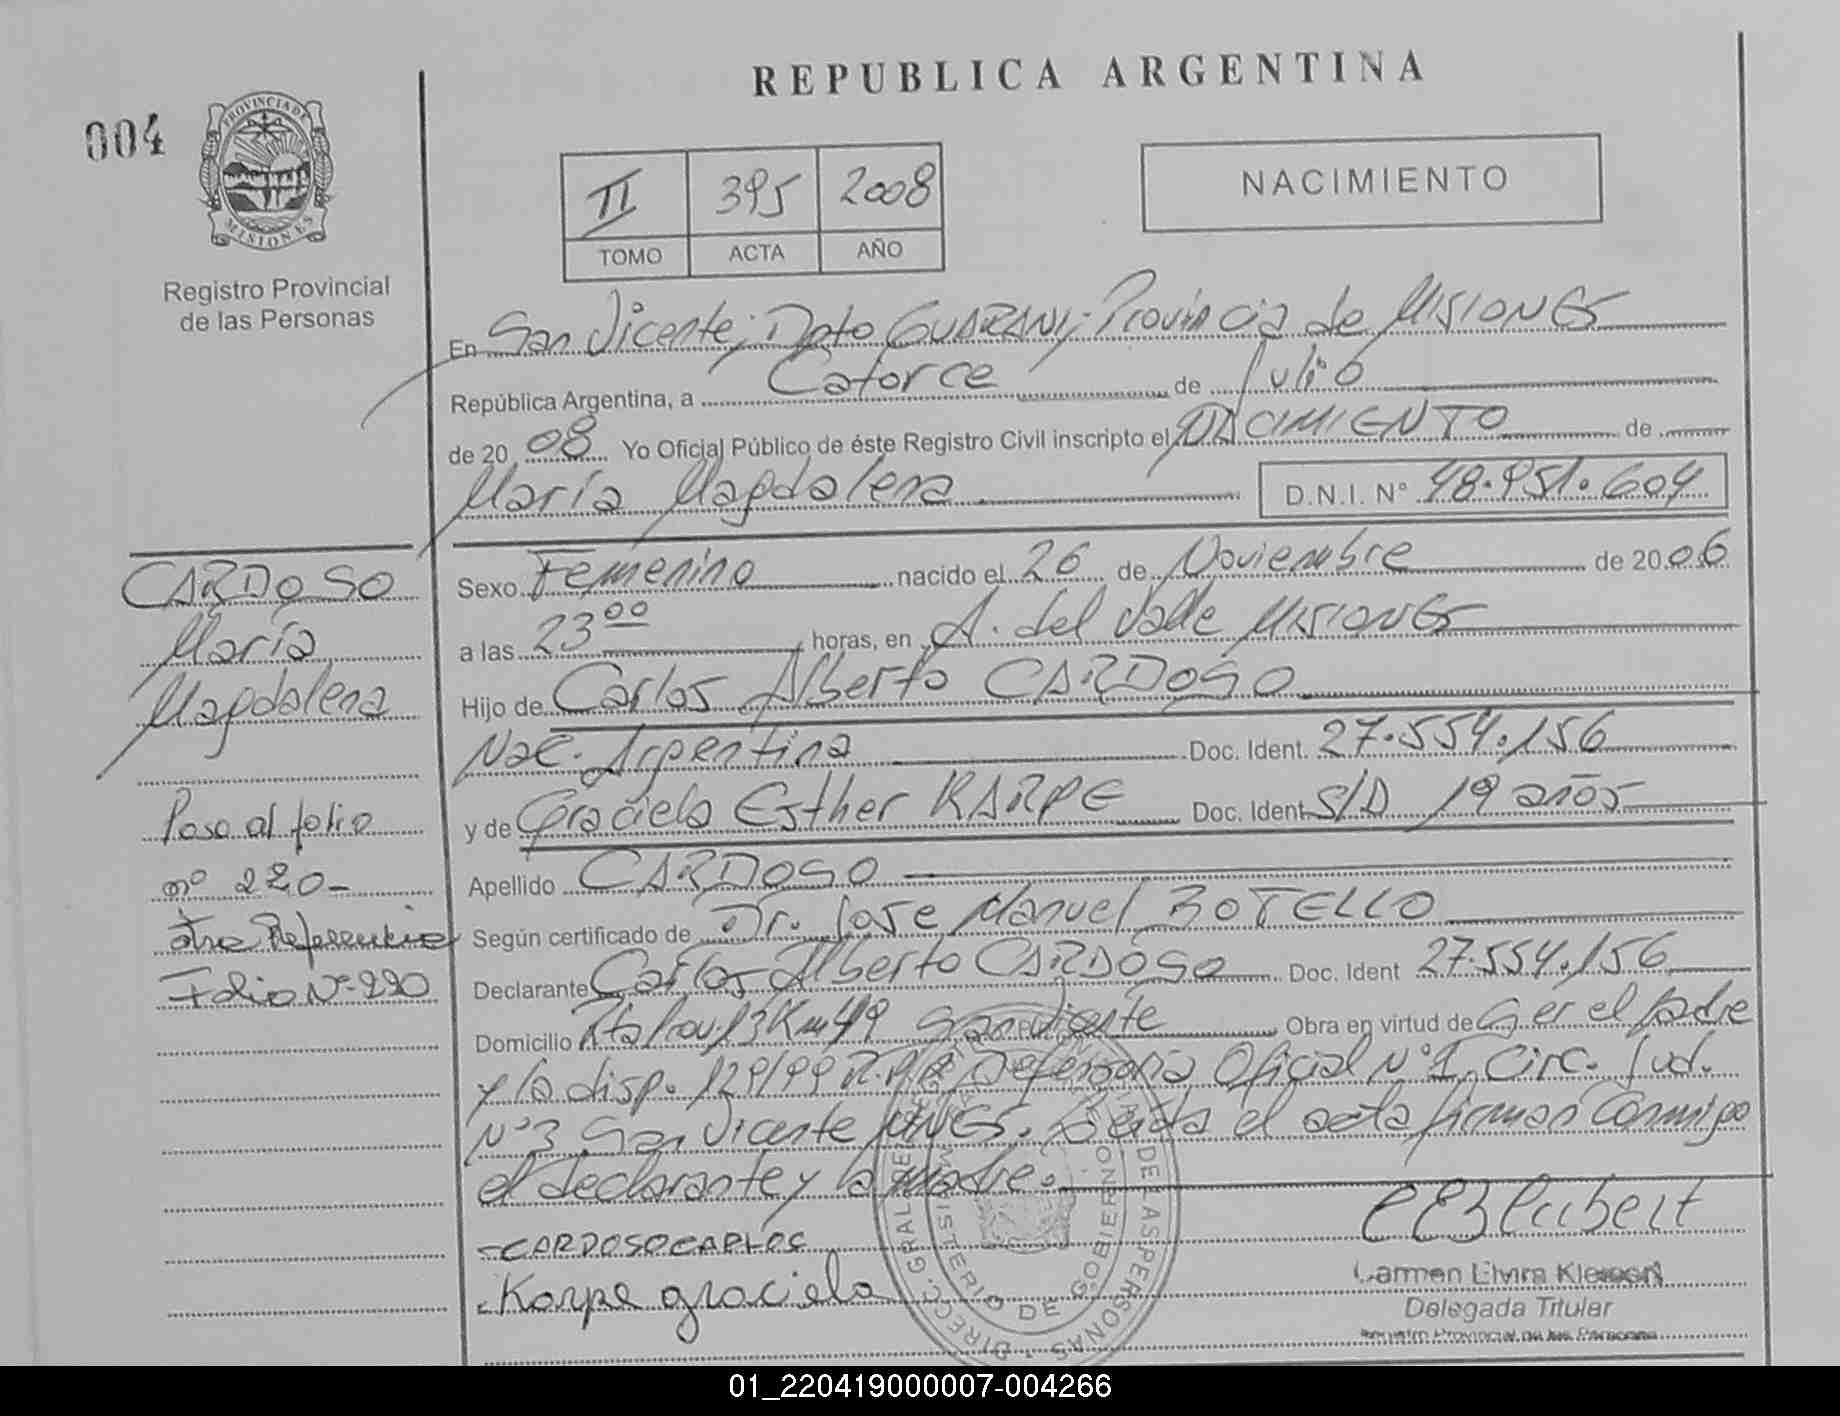 REPUBLICA ARGENTINA
004
PROVINCIA DE
MISIONES
Registro Provincial
de las Personas
II 395 2008
TOMO ACTA AÑO
NACIMIENTO
En San Vicente; Dpto GUARANI; Provincia de MISIONES
República Argentina, a Catorce de Julio
de 20 08 Yo Oficial Público de éste Registro Civil inscripto el NACIMIENTO de
María Magdalena D.N.I. Nº 48.951.604
Sexo Femenino nacido el 26 de Noviembre de 20 06
a las 23 00 horas, en A. del Valle MISIONES
Hijo de Carlos Alberto CARDOSO
Nac. Argentina Doc. Ident. 27.554.156
y de Graciela Esther KARPE Doc. Ident S/D 19 años
Apellido CARDOSO
Según certificado de Dr. Jose Manuel BOTELLO
Declarante Carlos Alberto CARDOSO Doc. Ident 27.554.156
Domicilio Rta Prov. 13 Km 49 San Vicente Obra en virtud de Ser el padre
y la disp. 129/99 Defensoria Oficial Nº1, Circ. Jud.
Nº3 San Vicente MNES. Leída el acta firman conmigo
el declarante y la madre.
CARDOSO CARLOS
Karpe graciela
Carmen Elvira
Delegada Titular
Registro Provincial de las Personas
CARDOSO
María
Magdalena
Pasa al folio
nº 220-
otra Referencia
Folio Nº 220
MINISTERIO DE GOBIERNO
DIRECC. GRAL. DEL REG. DE LAS PERSONAS
01_220419000007-004266